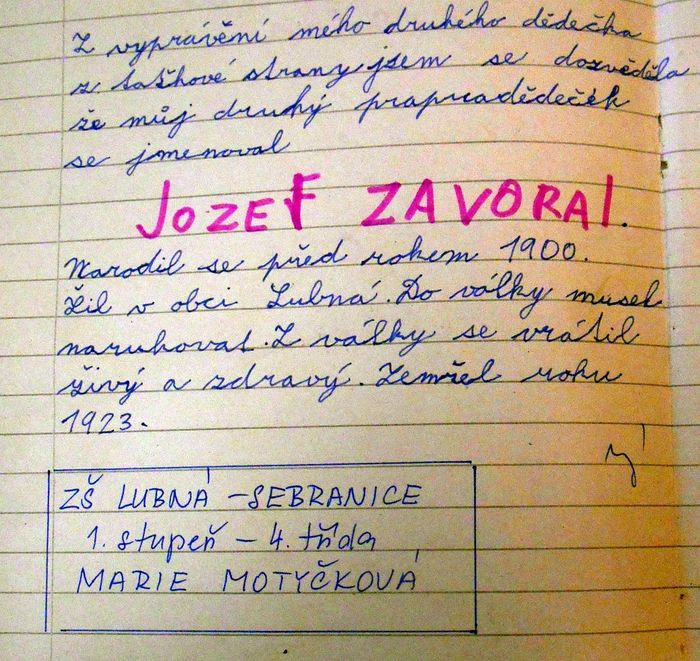 Z vyprávění mého druhého dědečka
z taškové strany jsem se dozvěděla
že můj druhý prapradědeček
se jmenoval
JOZEF ZAVORAl.
Narodil se před rokem 1900.
Žil v obci Lubná. Do války musel
narukovat. Z války se vrátil
živý a zdravý. Zemřel roku
1923.
ZŠ LUBNÁ - SEBRANICE
1. stupeň - 4. třída
MARIE MOTYČKOVÁ